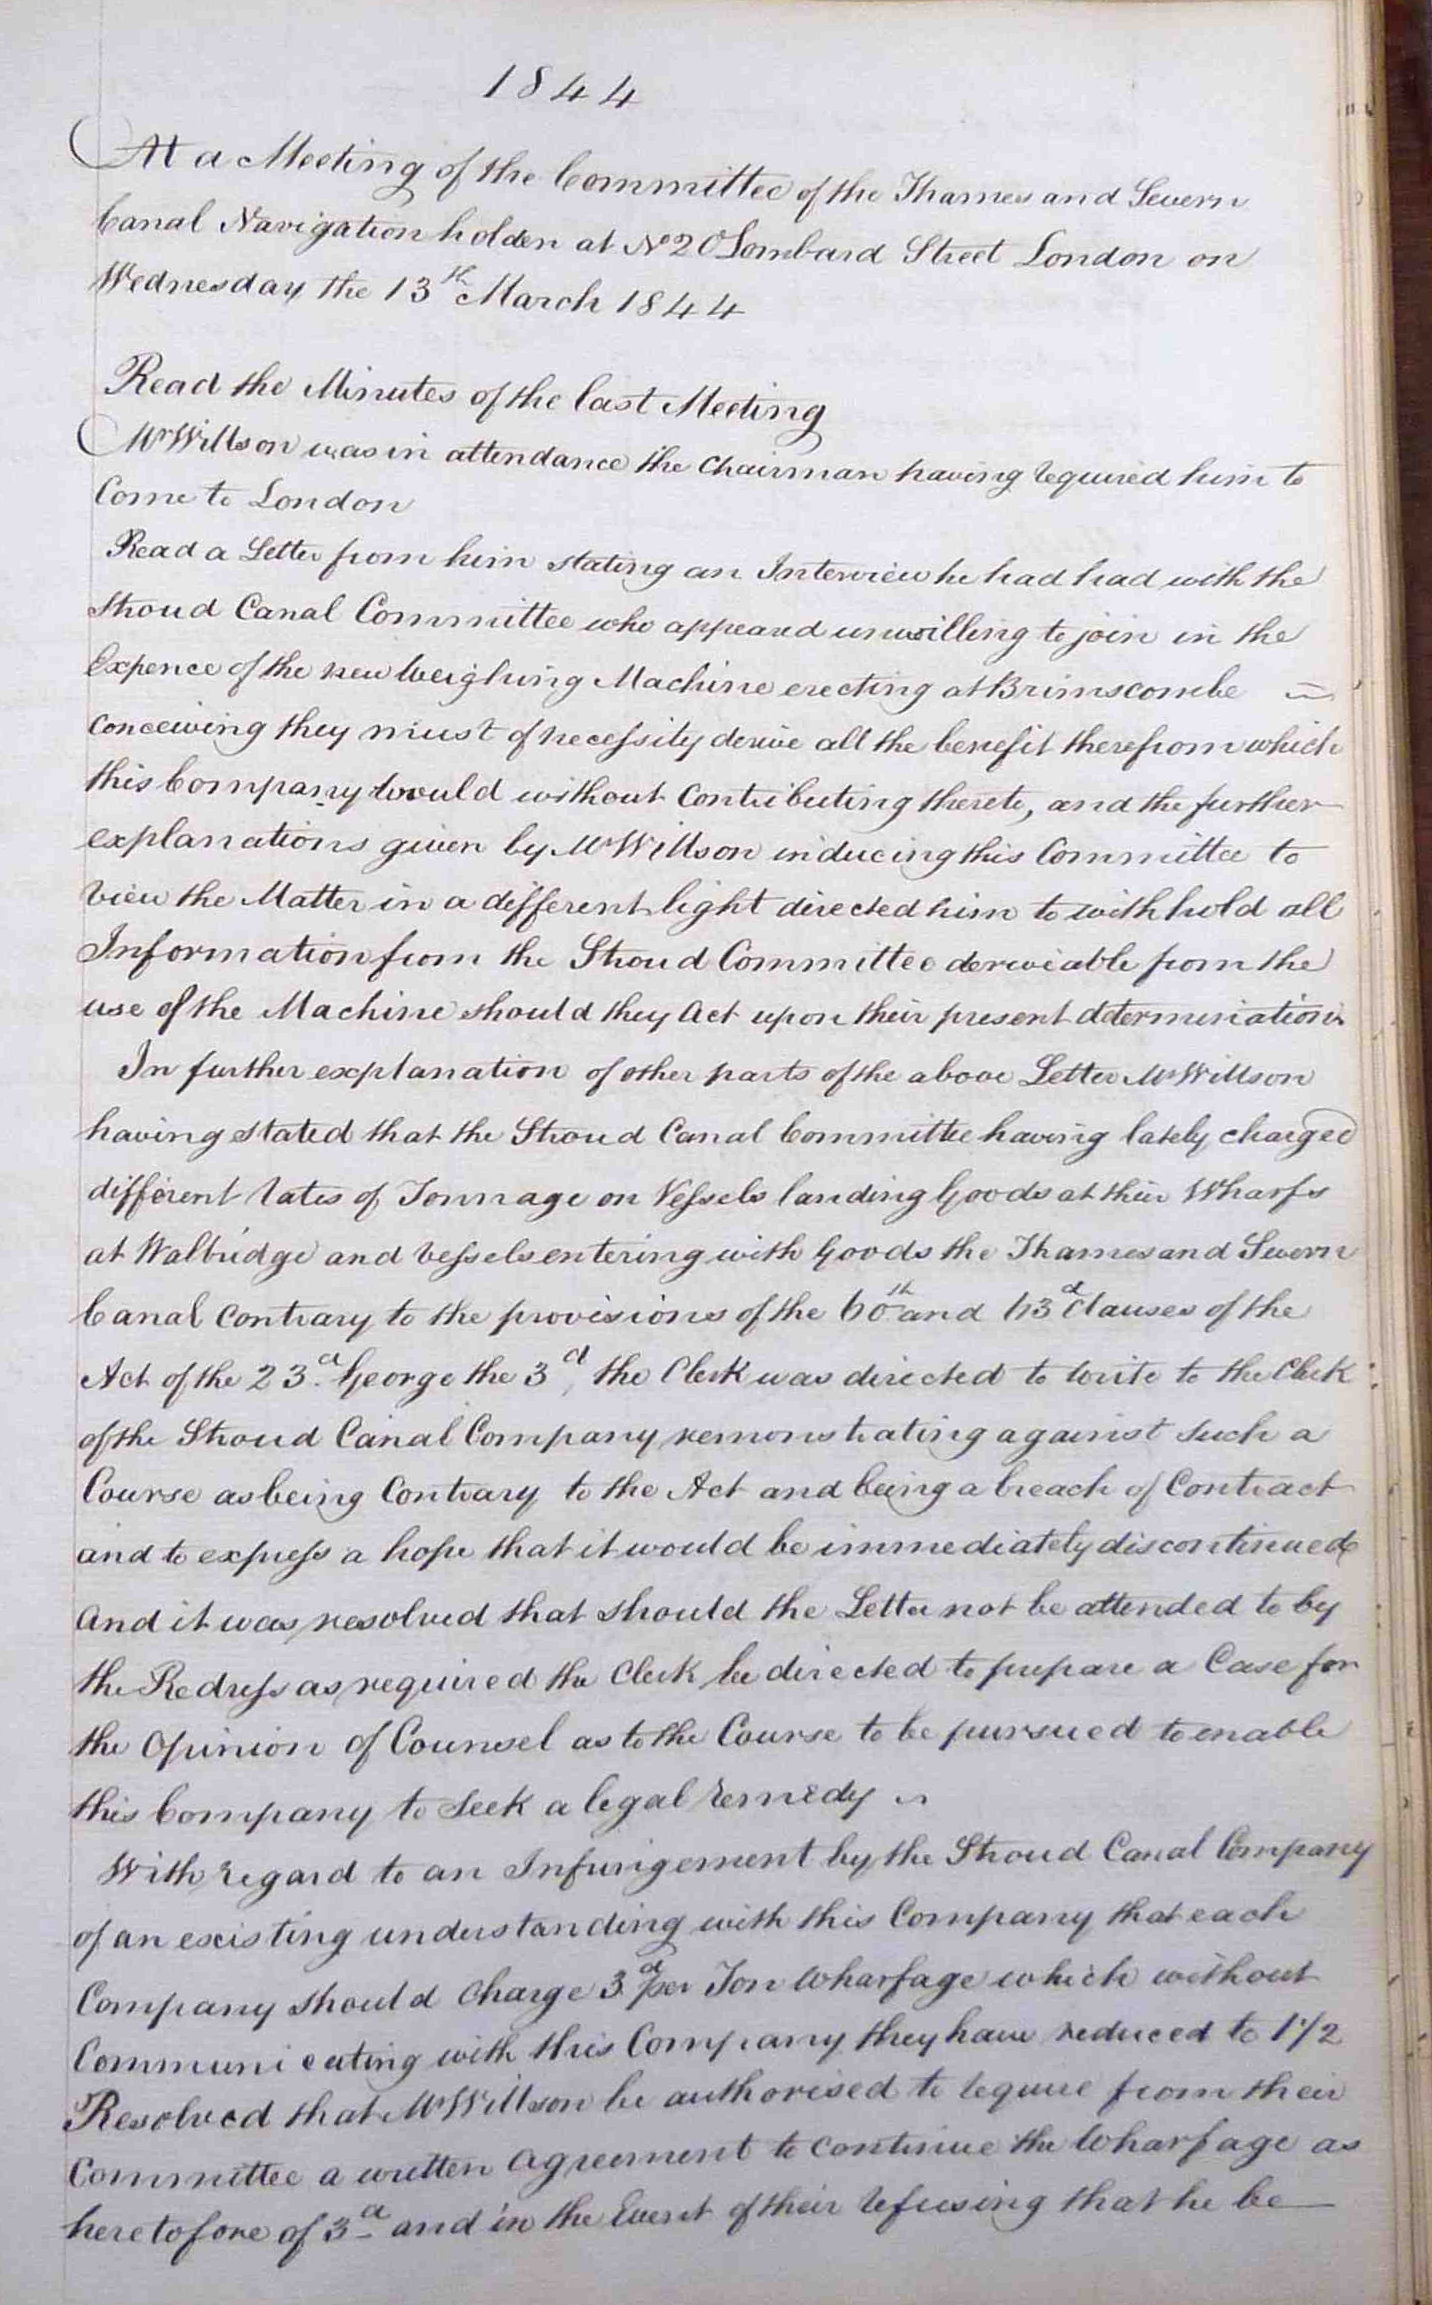 1844
At a Meeting of the Committee of the Thames and Severn
Canal Navigation holden at No 20 Lombard Street London on
Wednesday the 13th March 1844
Read the Minutes of the last Meeting
Mr Willson was in attendance the Chairman having required him to
Come to London
Read a Letter from him stating an Interview he had had with the
Stroud Canal Committee who appeared unwilling to join in the
Expence of the new Weighing Machine erecting at Brimscombe
conceiving they must of necessity derive all the benefit therefrom which
this Company would without Contributing thereto, and the further
explanations given by Mr Willson inducing this Committee to
view the Matter in a different light directed him to withhold all
Information from the Stroud Committee derviable from the
use of the Machine should they Act upon their present determination
In further explanation of other parts of the above Letter Mr Willson
having stated that the Stroud Canal Committee having lately charged
different rates of Tonnage on Vessels landing Goods at their Wharfs
at Walbridge and Vessels entering with Goods the Thames and Severn
Canal contrary to the provisions of the 60th and 63d Clauses of the
Act of the 23d George the 3d, the Clerk was directed to write to the Clerk
of the Stroud Canal Company remonstrating against such a
Course as being Contrary to the Act and being a breach of Contract
and to express a hope that it would be immediately discontinued
And it was resolved that should the Letter not be attended to by
the Redress as required the Clerk be directed to prepare a Case for
the Opinion of Counsel as to the Course to be pursued to enable
this Company to seek a legal remedy
With regard to an Infringement by the Stroud Canal Company
of an existing understanding with this Company that each
Company should charge 3d per Ton Wharfage which without
Communicating with this Company they have reduced to 1 1/2
Resolved that Mr Willson be authorised to require from their
Committee a written Agreement to continue the Wharfage as
heretofore of 3d and in the Event of their refusing that he be